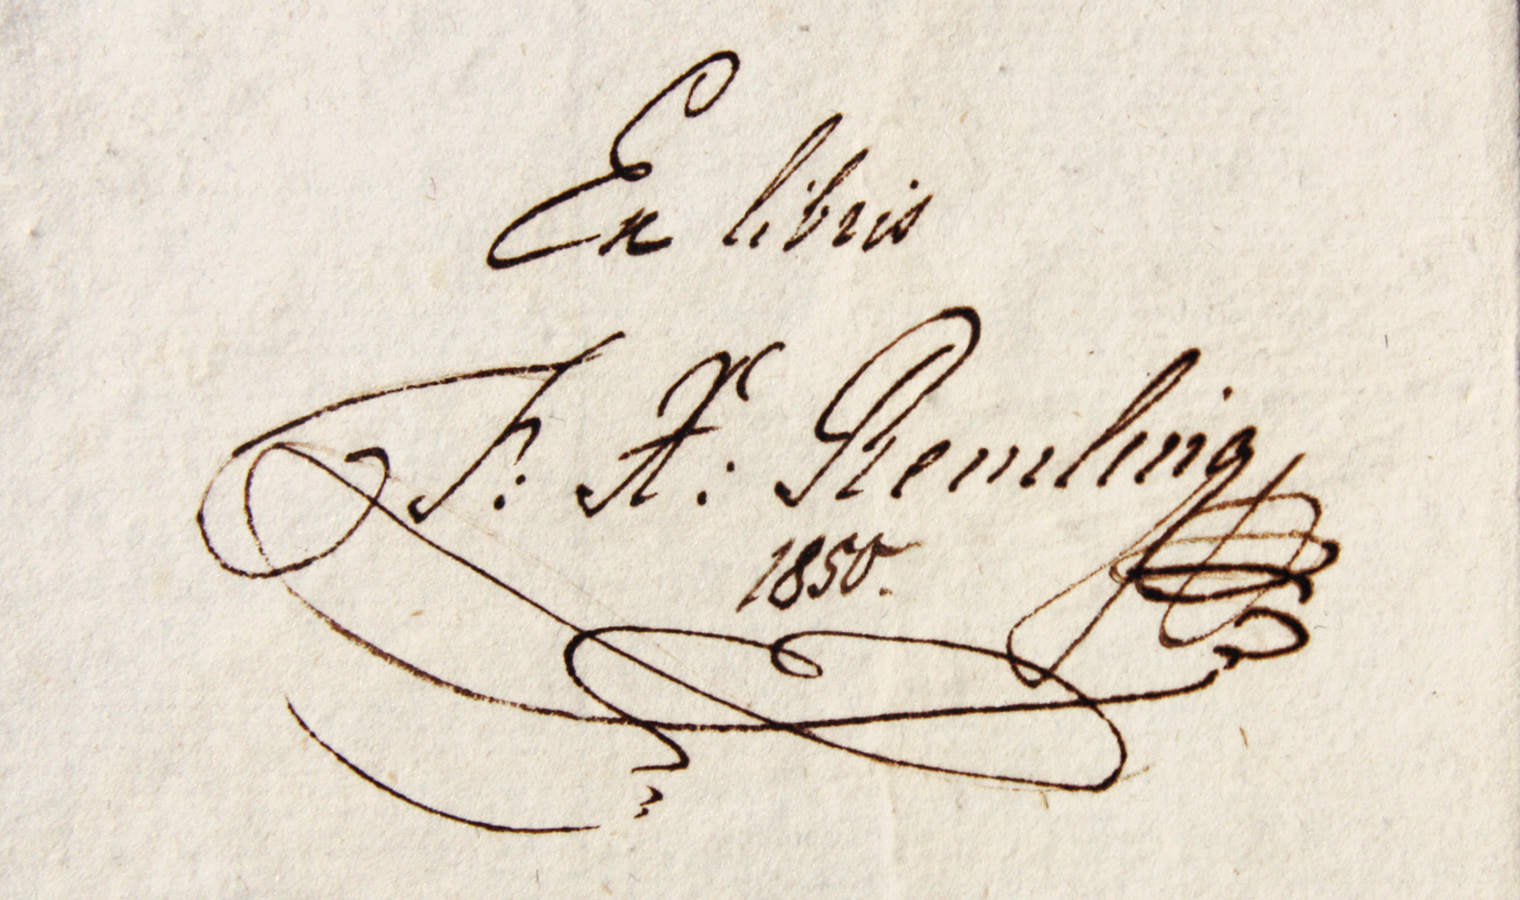 Ex libris
F. X. Remling
1850.